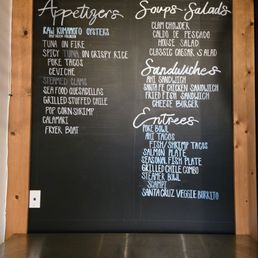 Appetizers
RAW KUMAMOTO OYSTERS
TUNA ON FIRE
SPICY TUNA ON CRISPY RICE
POKE TACOS
CEVICHE
STEAMED CLAMS
SEA FOOD QUESADILLAS
GRILLED STUFFED CHILE
POP CORN SHRIMP
CALAMARI
FRYER BOAT
Soups-Salads
CLAM CHOWDER
CALDO DE PESCADO
HOUSE SALAD
CLASSIC CAESAR SALAD
Sandwiches
AHI SANDWICH
SANTA FE CHICKEN SANDWICH
FRIED FISH SANDWICH
CHEESE BURGER
Entrees
POKE BOWL
AHI TACOS
FISH/SHRIMP TACOS
SALMON PLATE
SEASONAL FISH PLATE
GRILLED CHILE COMBO
STEAMER BOWL
SCAMPI
SANTA CRUZ VEGGIE BURRITO